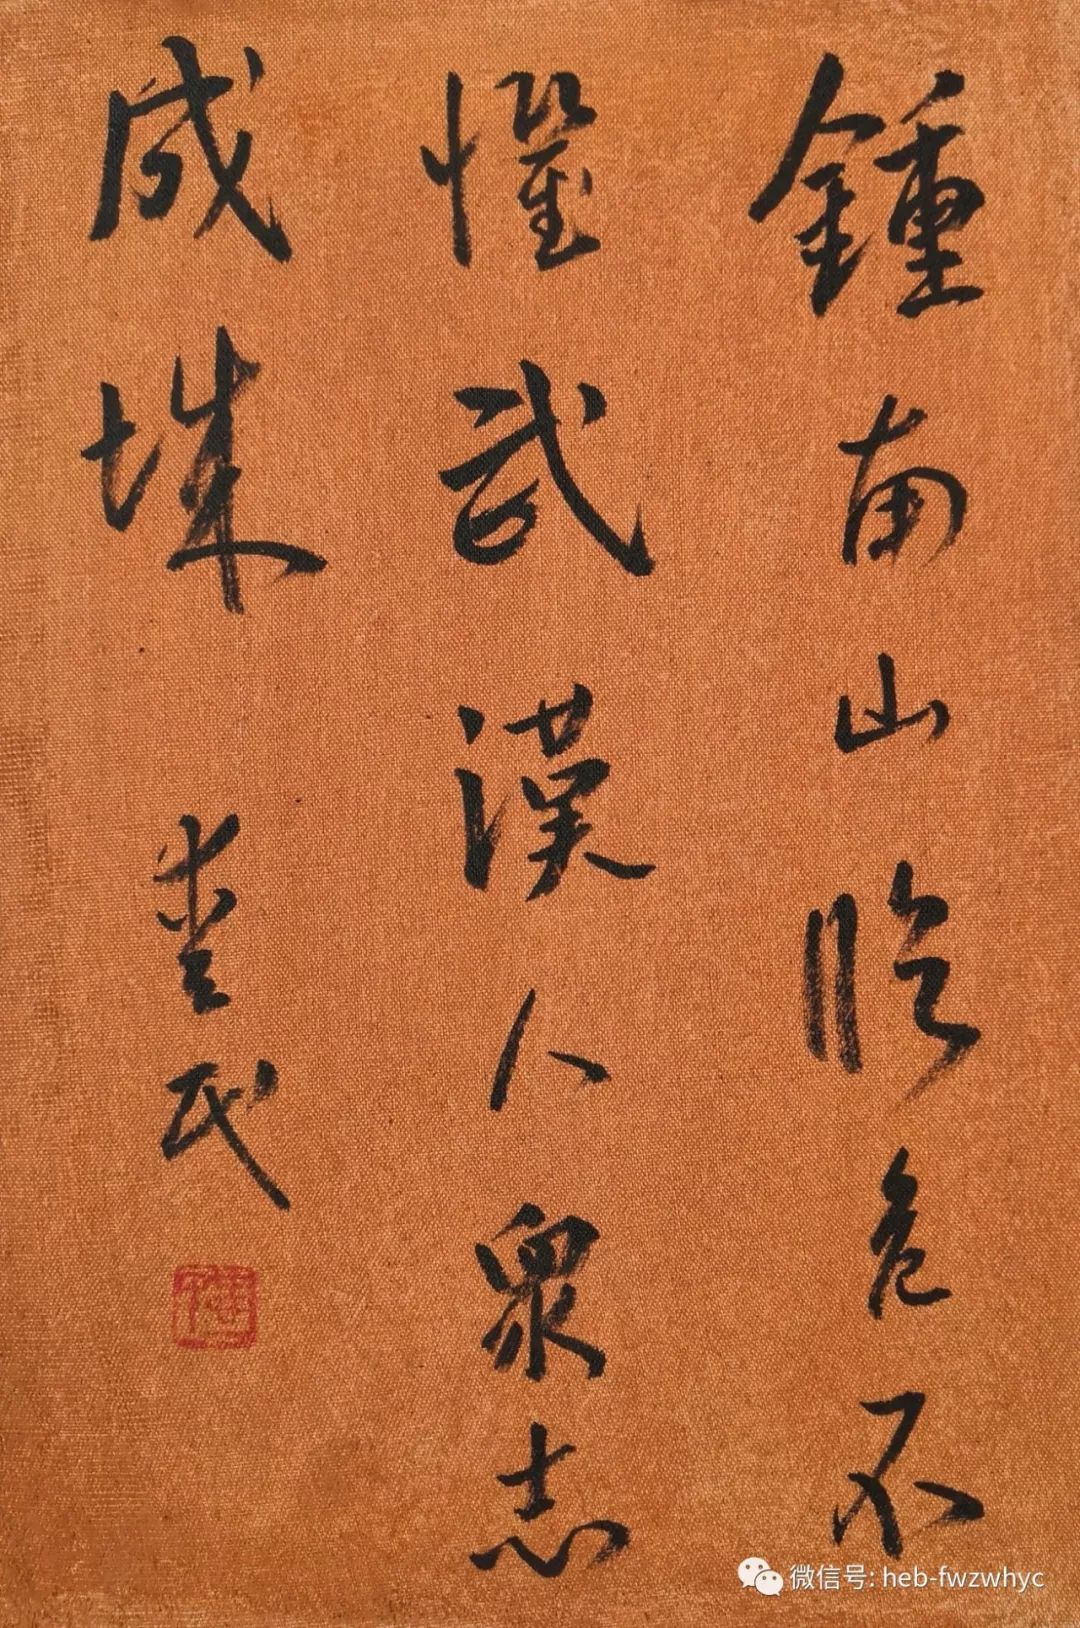 鍾南山臨危不
懼武漢人衆志
成城
民
微信号: heb-fwzwhyc